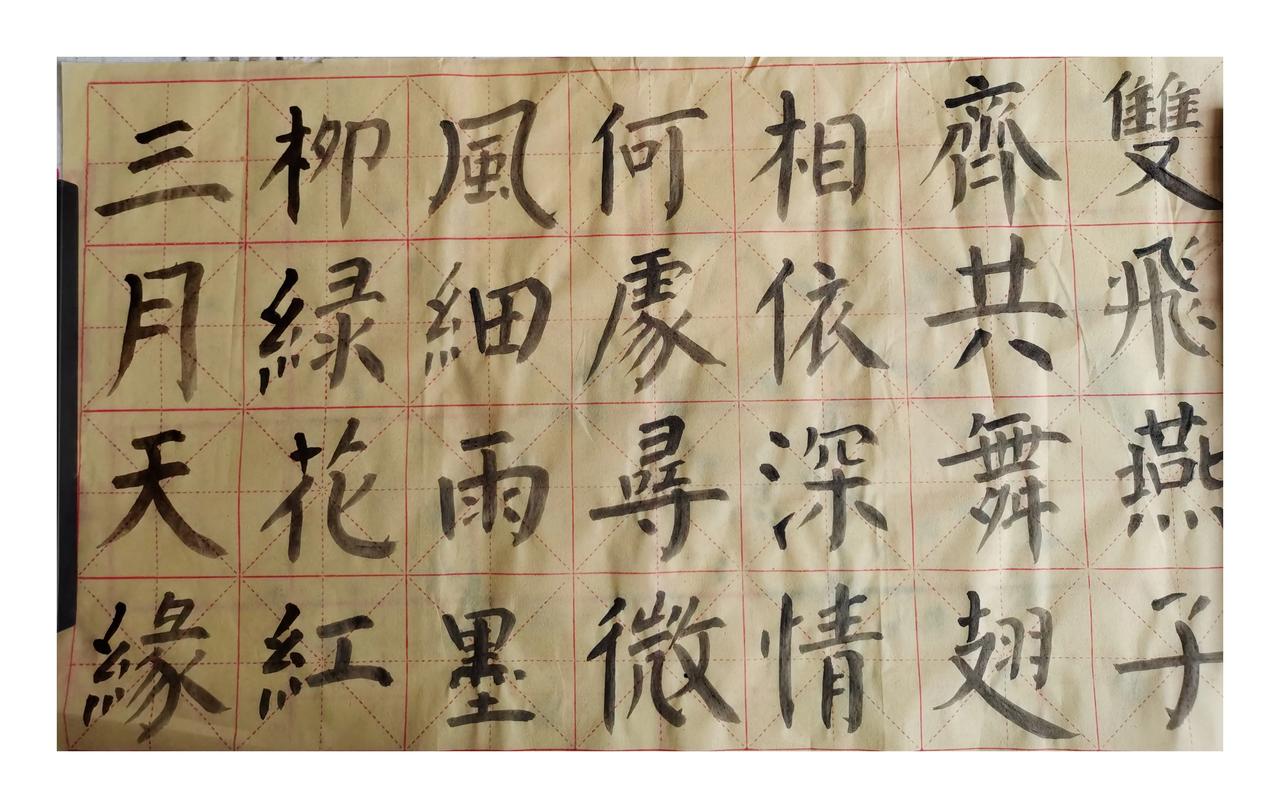 雙飛燕子
齊共舞翅
相依深情
何處尋微
風細雨墨
柳綠花紅
三月天緣